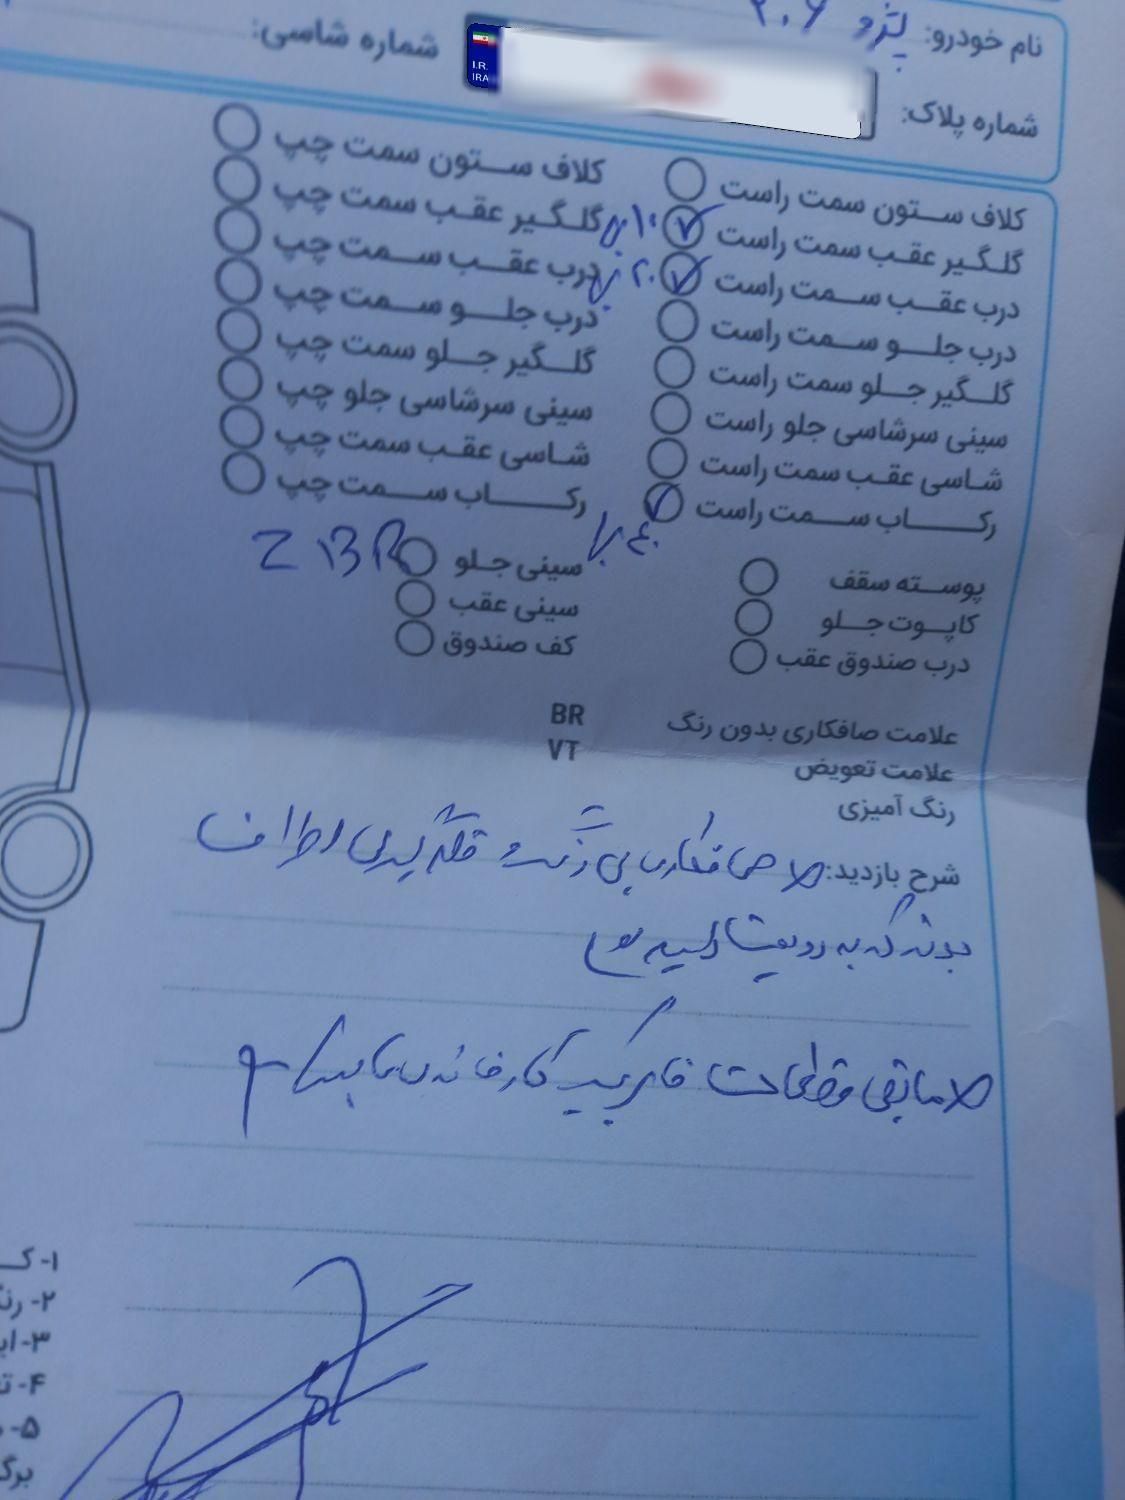 نام خودرو: پژو ۲۰۶
شماره پلاک:
I.R.
IRA
شماره شاسی:
کلاف ستون سمت راست
کلاف ستون سمت چپ
گلگیر عقب سمت راست ۱۰٪
گلگیر عقب سمت چپ
درب عقب سمت راست ۲۰٪
درب عقب سمت چپ
درب جلو سمت راست
درب جلو سمت چپ
گلگیر جلو سمت راست
گلگیر جلو سمت چپ
سینی سرشاسی جلو راست
سینی سرشاسی جلو چپ
شاسی عقب سمت راست
شاسی عقب سمت چپ
رکاب سمت راست ۴۰٪
رکاب سمت چپ
پوسته سقف
سینی جلو
کاپوت جلو
سینی عقب
درب صندوق عقب
کف صندوق
علامت صافکاری بدون رنگ BR
علامت تعویض VT
رنگ آمیزی
شرح بازدید: صافکاری بی رنگ و قلم گیری اطراف
بدنه که به رویت رسید
مابقی قطعات فابریک کارخانه می باشد
۱- ک
۲- رن
۳- ای
۴- ت
۵-
برگ